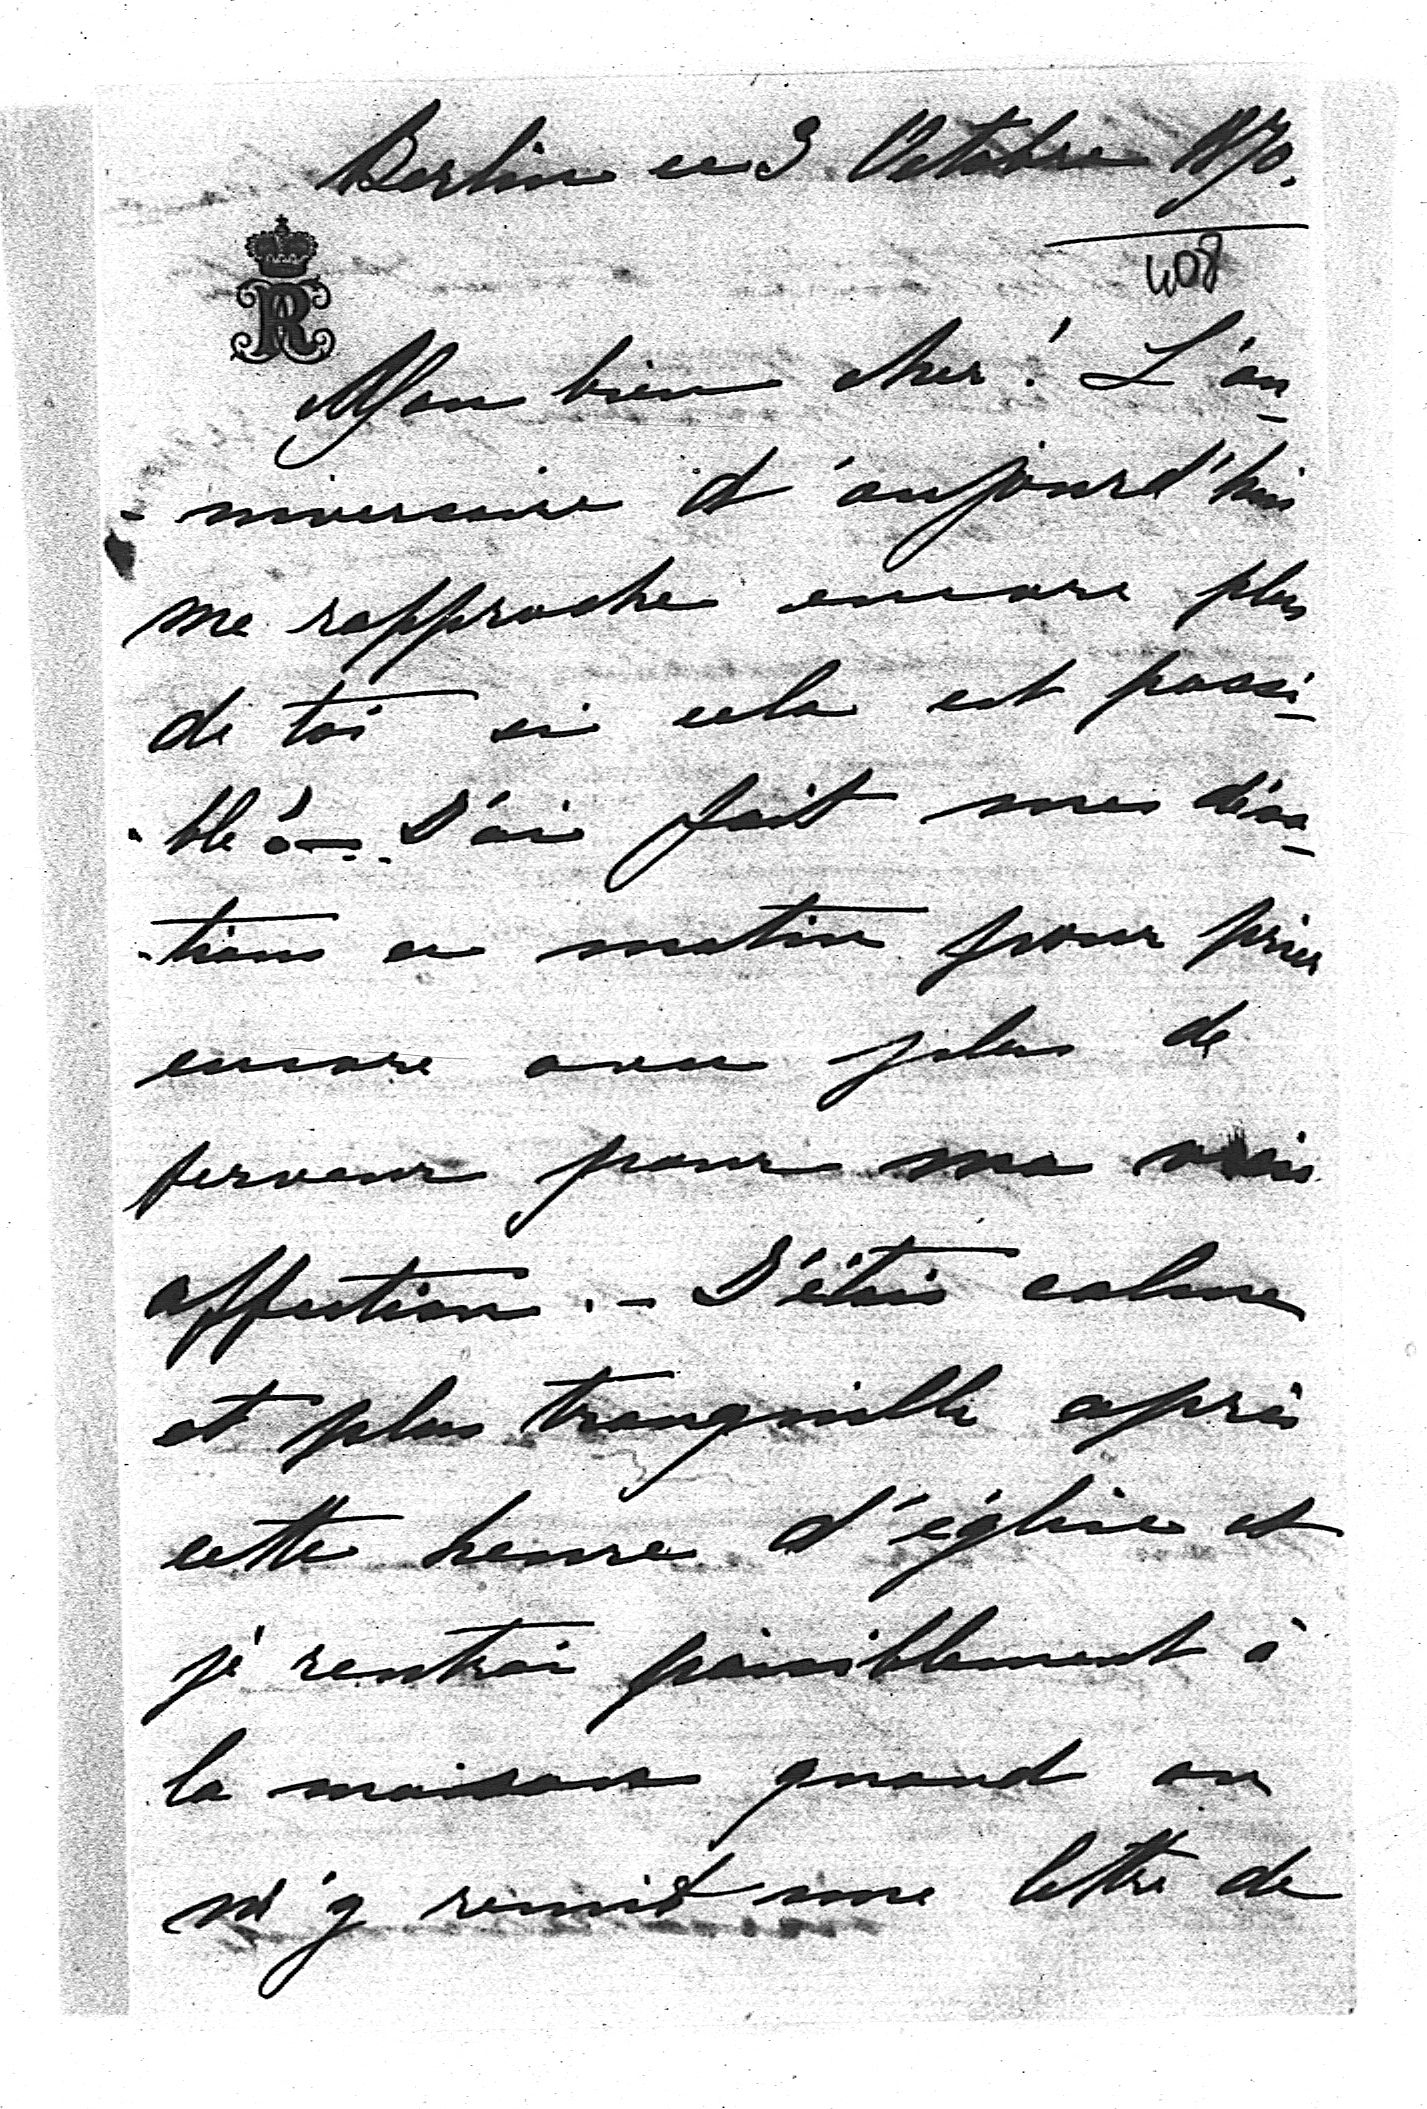 Berlin ce 3 Octobre 1870.
408
R
Mon bien cher! L'an-
-niversaire d'aujourd'hui
me rapproche encore plus
de toi si cela est possi-
-ble! — J'ai fait mes dévo-
-tions ce matin pour prier
encore avec plus de
ferveur pour ma
affection. — J'étais calme
et plus tranquille après
cette heure d'église et
je rentrai paisiblement à
la maison quand on
m'y remit une lettre de